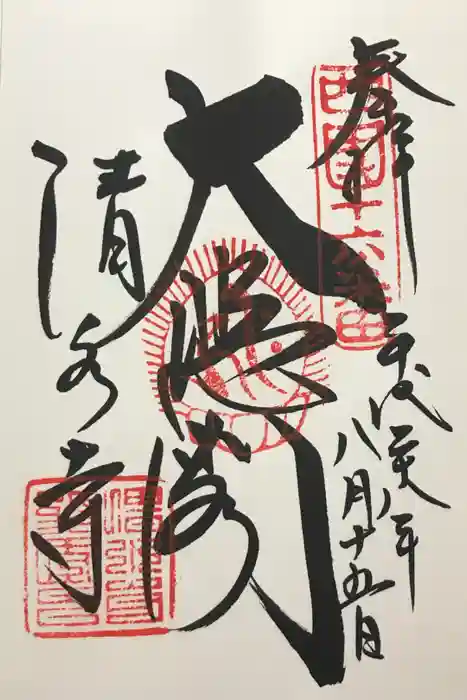 奉拝
西国十六番
平成廿八年
八月十五日
大悲閣
清水寺